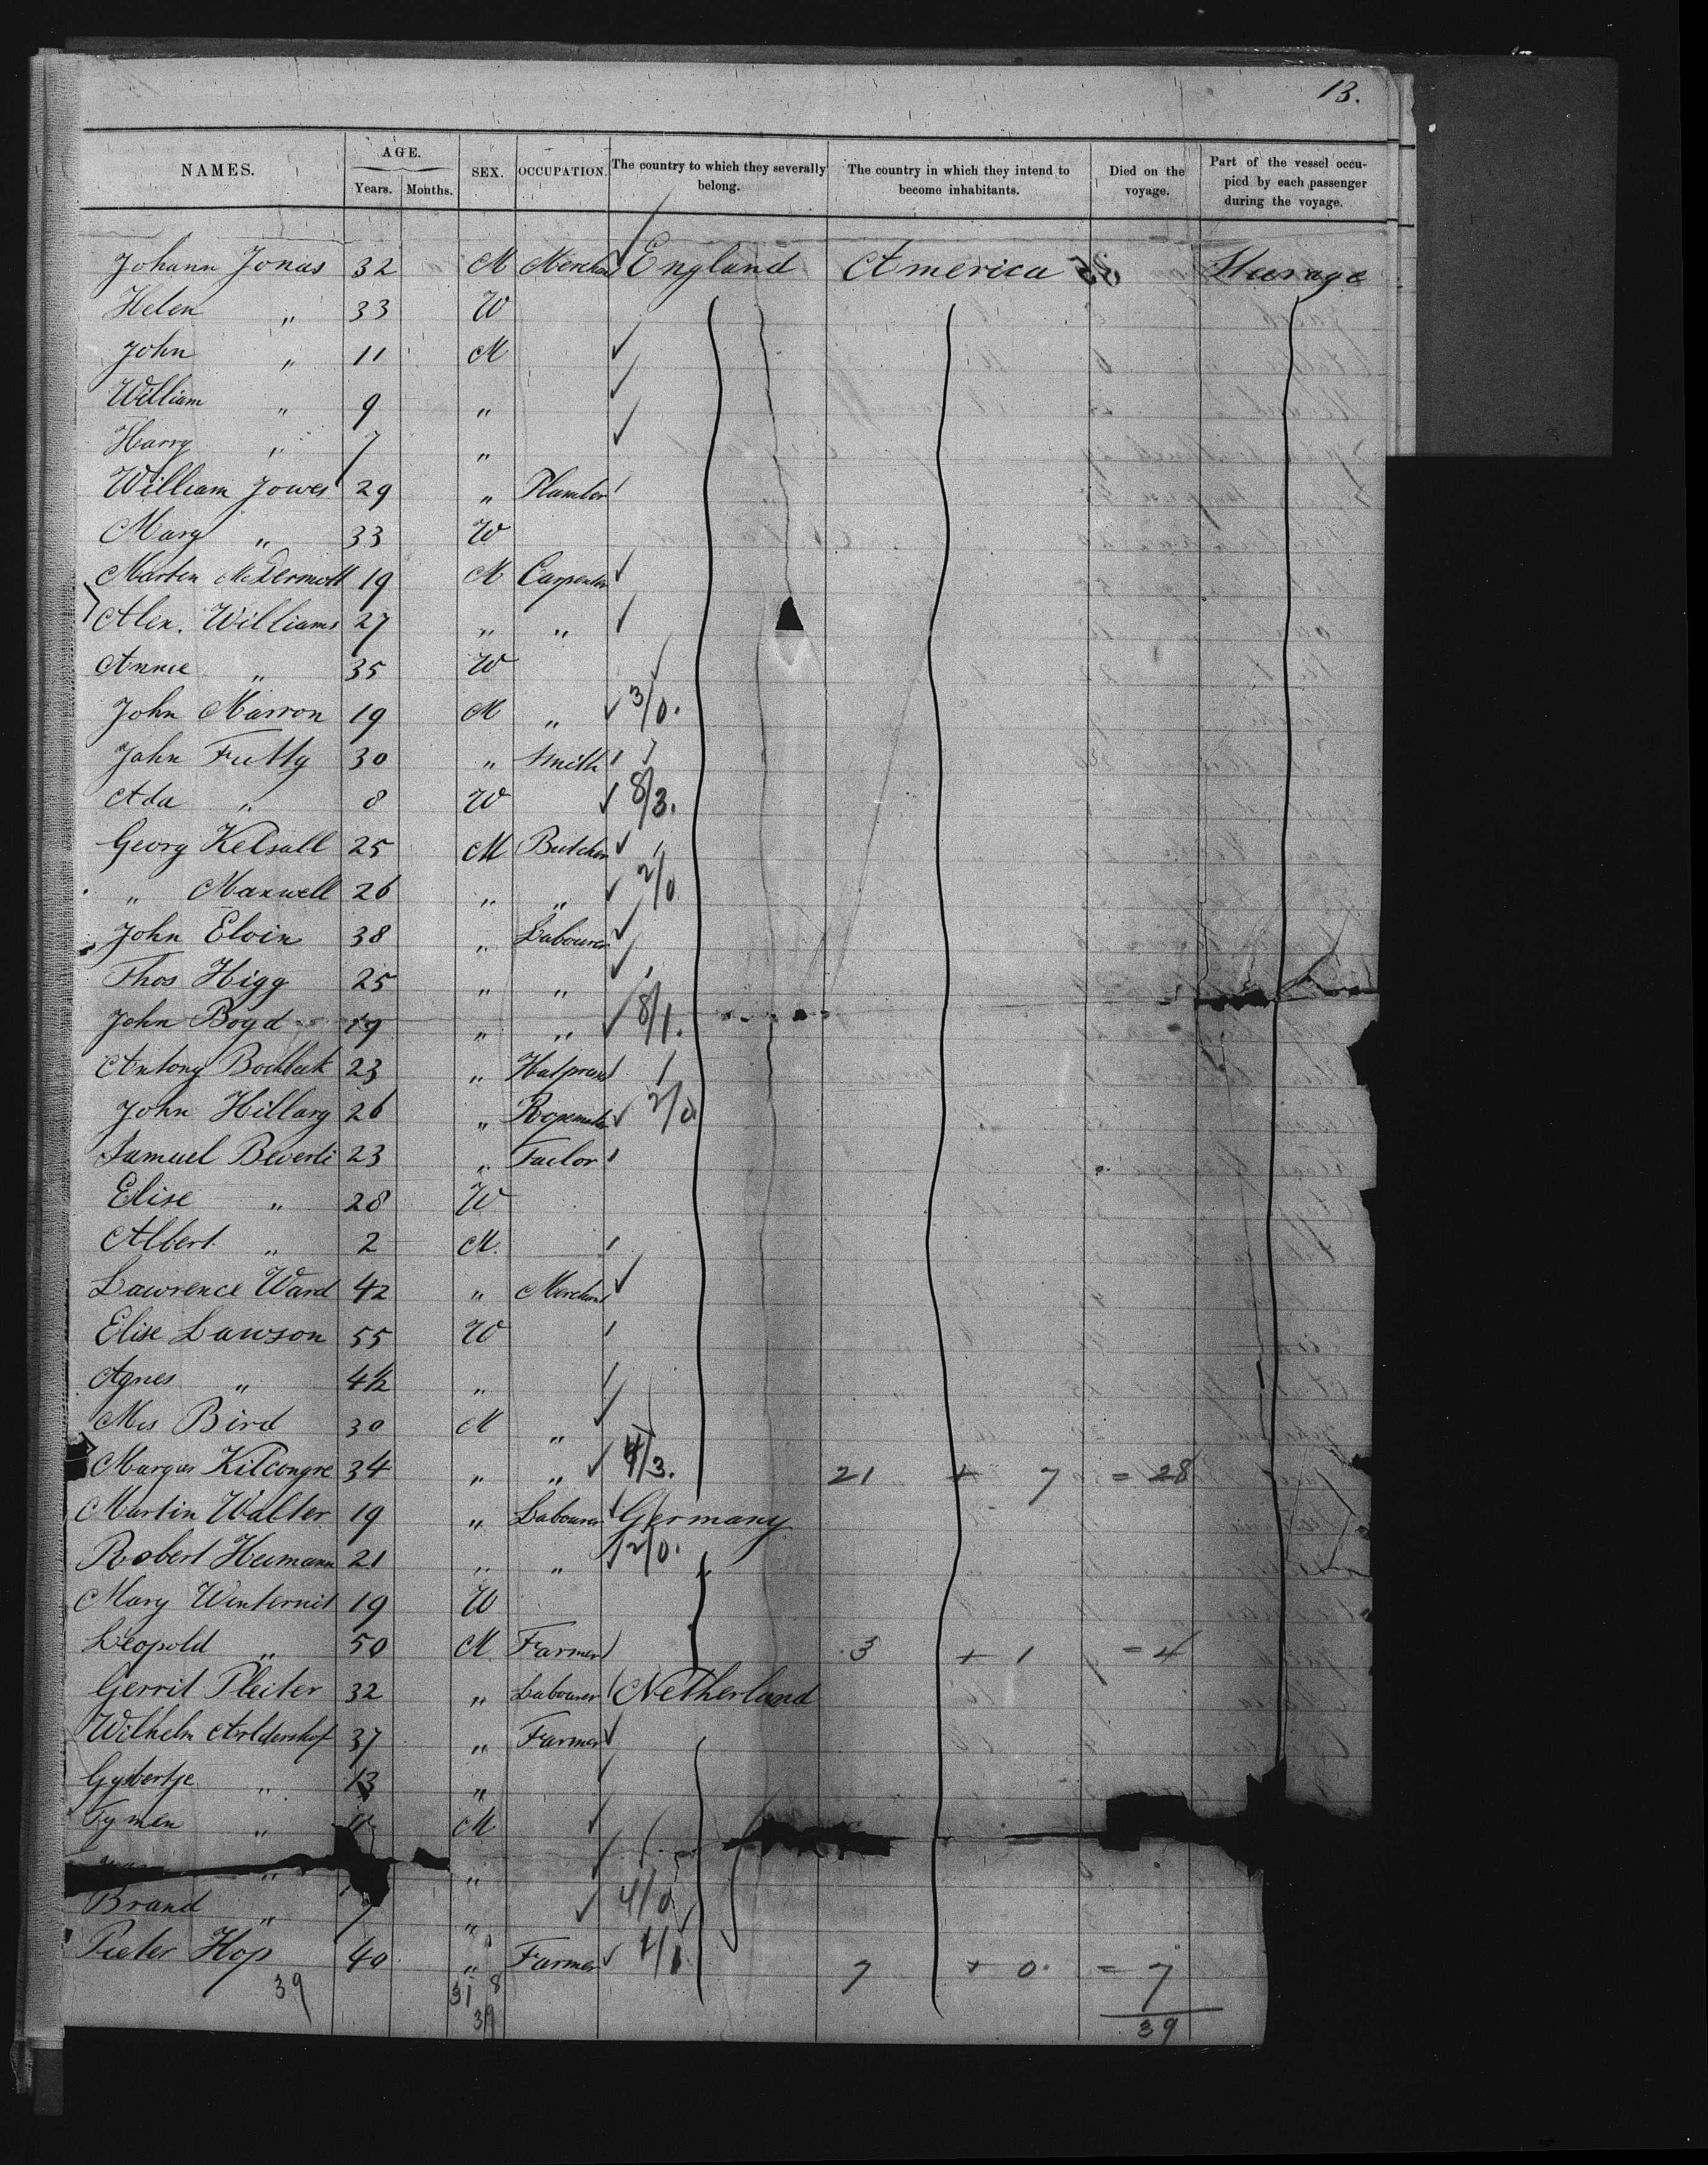 13.
NAMES. AGE. Years. Months. SEX. OCCUPATION. The country to which they severally belong. The country in which they intend to become inhabitants. Died on the voyage. Part of the vessel occupied by each passenger during the voyage.
Johann Jonas 32 M England America Steerage
Helen " 33 W
John " 11 M
William " 9 "
Harry " 7 "
William Jowes 29 "
Mary " 33 W
Marten McDermott 19 M Carpenter
Alex. Williams 27 " "
Annie " 35 W
John Marron 19 M " 3/0.
John Futty 30 " Smith
Ada " 8 W 8/3.
Georg Kelsall 25 M Butcher
" Maxwell 26 " " 2/0
John Elvin 38 " Labourer
Thos Higg 25 " "
John Boyd 19 " " 8/1.
Antony 23 "
John Hillary 26 " 2/0
Samuel Beverli 23 " Tailor
Elise " 28 W
Albert " 2 M.
Lawrence Ward 42 "
Elise Lawson 55 W
Agnes " "
Mis Bird 30 M "
34 " " 4/3. 21 + 7 = 28
Martin Walter 19 " Labourer Germany
Robert Heimann 21 " " 2/0. "
Mary Winternit 19 W
Leopold " 50 M Farmer 3 + 1 = 4
Gerrit Pleiter 32 " Labourer Netherland
Wilhelm 37 " Farmer
Gysbertje " 13 "
Tymen " M
" "
Brand " 7 " 4/0
Pieter Hop 40 " Farmer 1/1 7 + 0 = 7
39 31 8 39
39